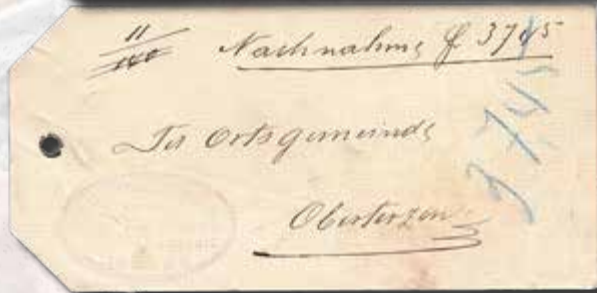 11
Nachnahme f 37.45
Tit Ortsgemeinde
Oberterzen
3745